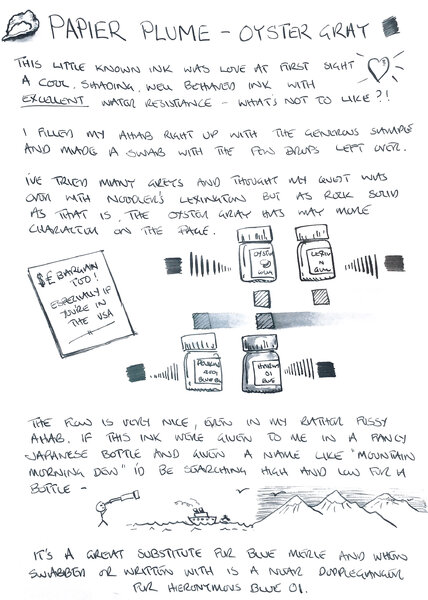 PAPIER PLUME - OYSTER GRAY
THIS LITTLE KNOWN INK WAS LOVE AT FIRST SIGHT
A COOL, SHADING, WELL BEHAVED INK WITH
EXCELLENT WATER RESISTANCE - WHAT'S NOT TO LIKE?!
I FILLED MY AHAB RIGHT UP WITH THE GENEROUS SAMPLE
AND MADE A SWAB WITH THE FEW DROPS LEFT OVER.
I'VE TRIED MANY GREYS AND THOUGHT MY QUEST WAS
OVER WITH NOODLER'S LEXINGTON BUT AS ROCK SOLID
AS THAT IS, THE OYSTER GRAY HAS WAY MORE
CHARACTER ON THE PAGE.
OYSTER
LEXIN
N
GRAY
$£ BARGAIN
TOO!
ESPECIALLY IF
YOU'RE IN
THE USA
BLUE
HIERO
01
BLUE
THE FLOW IS VERY NICE, EVEN IN MY RATHER FUSSY
AHAB. IF THIS INK WERE GIVEN TO ME IN A FANCY
JAPANESE BOTTLE AND GIVEN A NAME LIKE "MOUNTAIN
MORNING DEW" I'D BE SEARCHING HIGH AND LOW FOR A
BOTTLE -
IT'S A GREAT SUBSTITUTE FOR BLUE MERLE AND WHEN
SWABBED OR WRITTEN WITH IS A NEAR DOPPLEGANGER
FOR HIERONYMOUS BLUE 01.